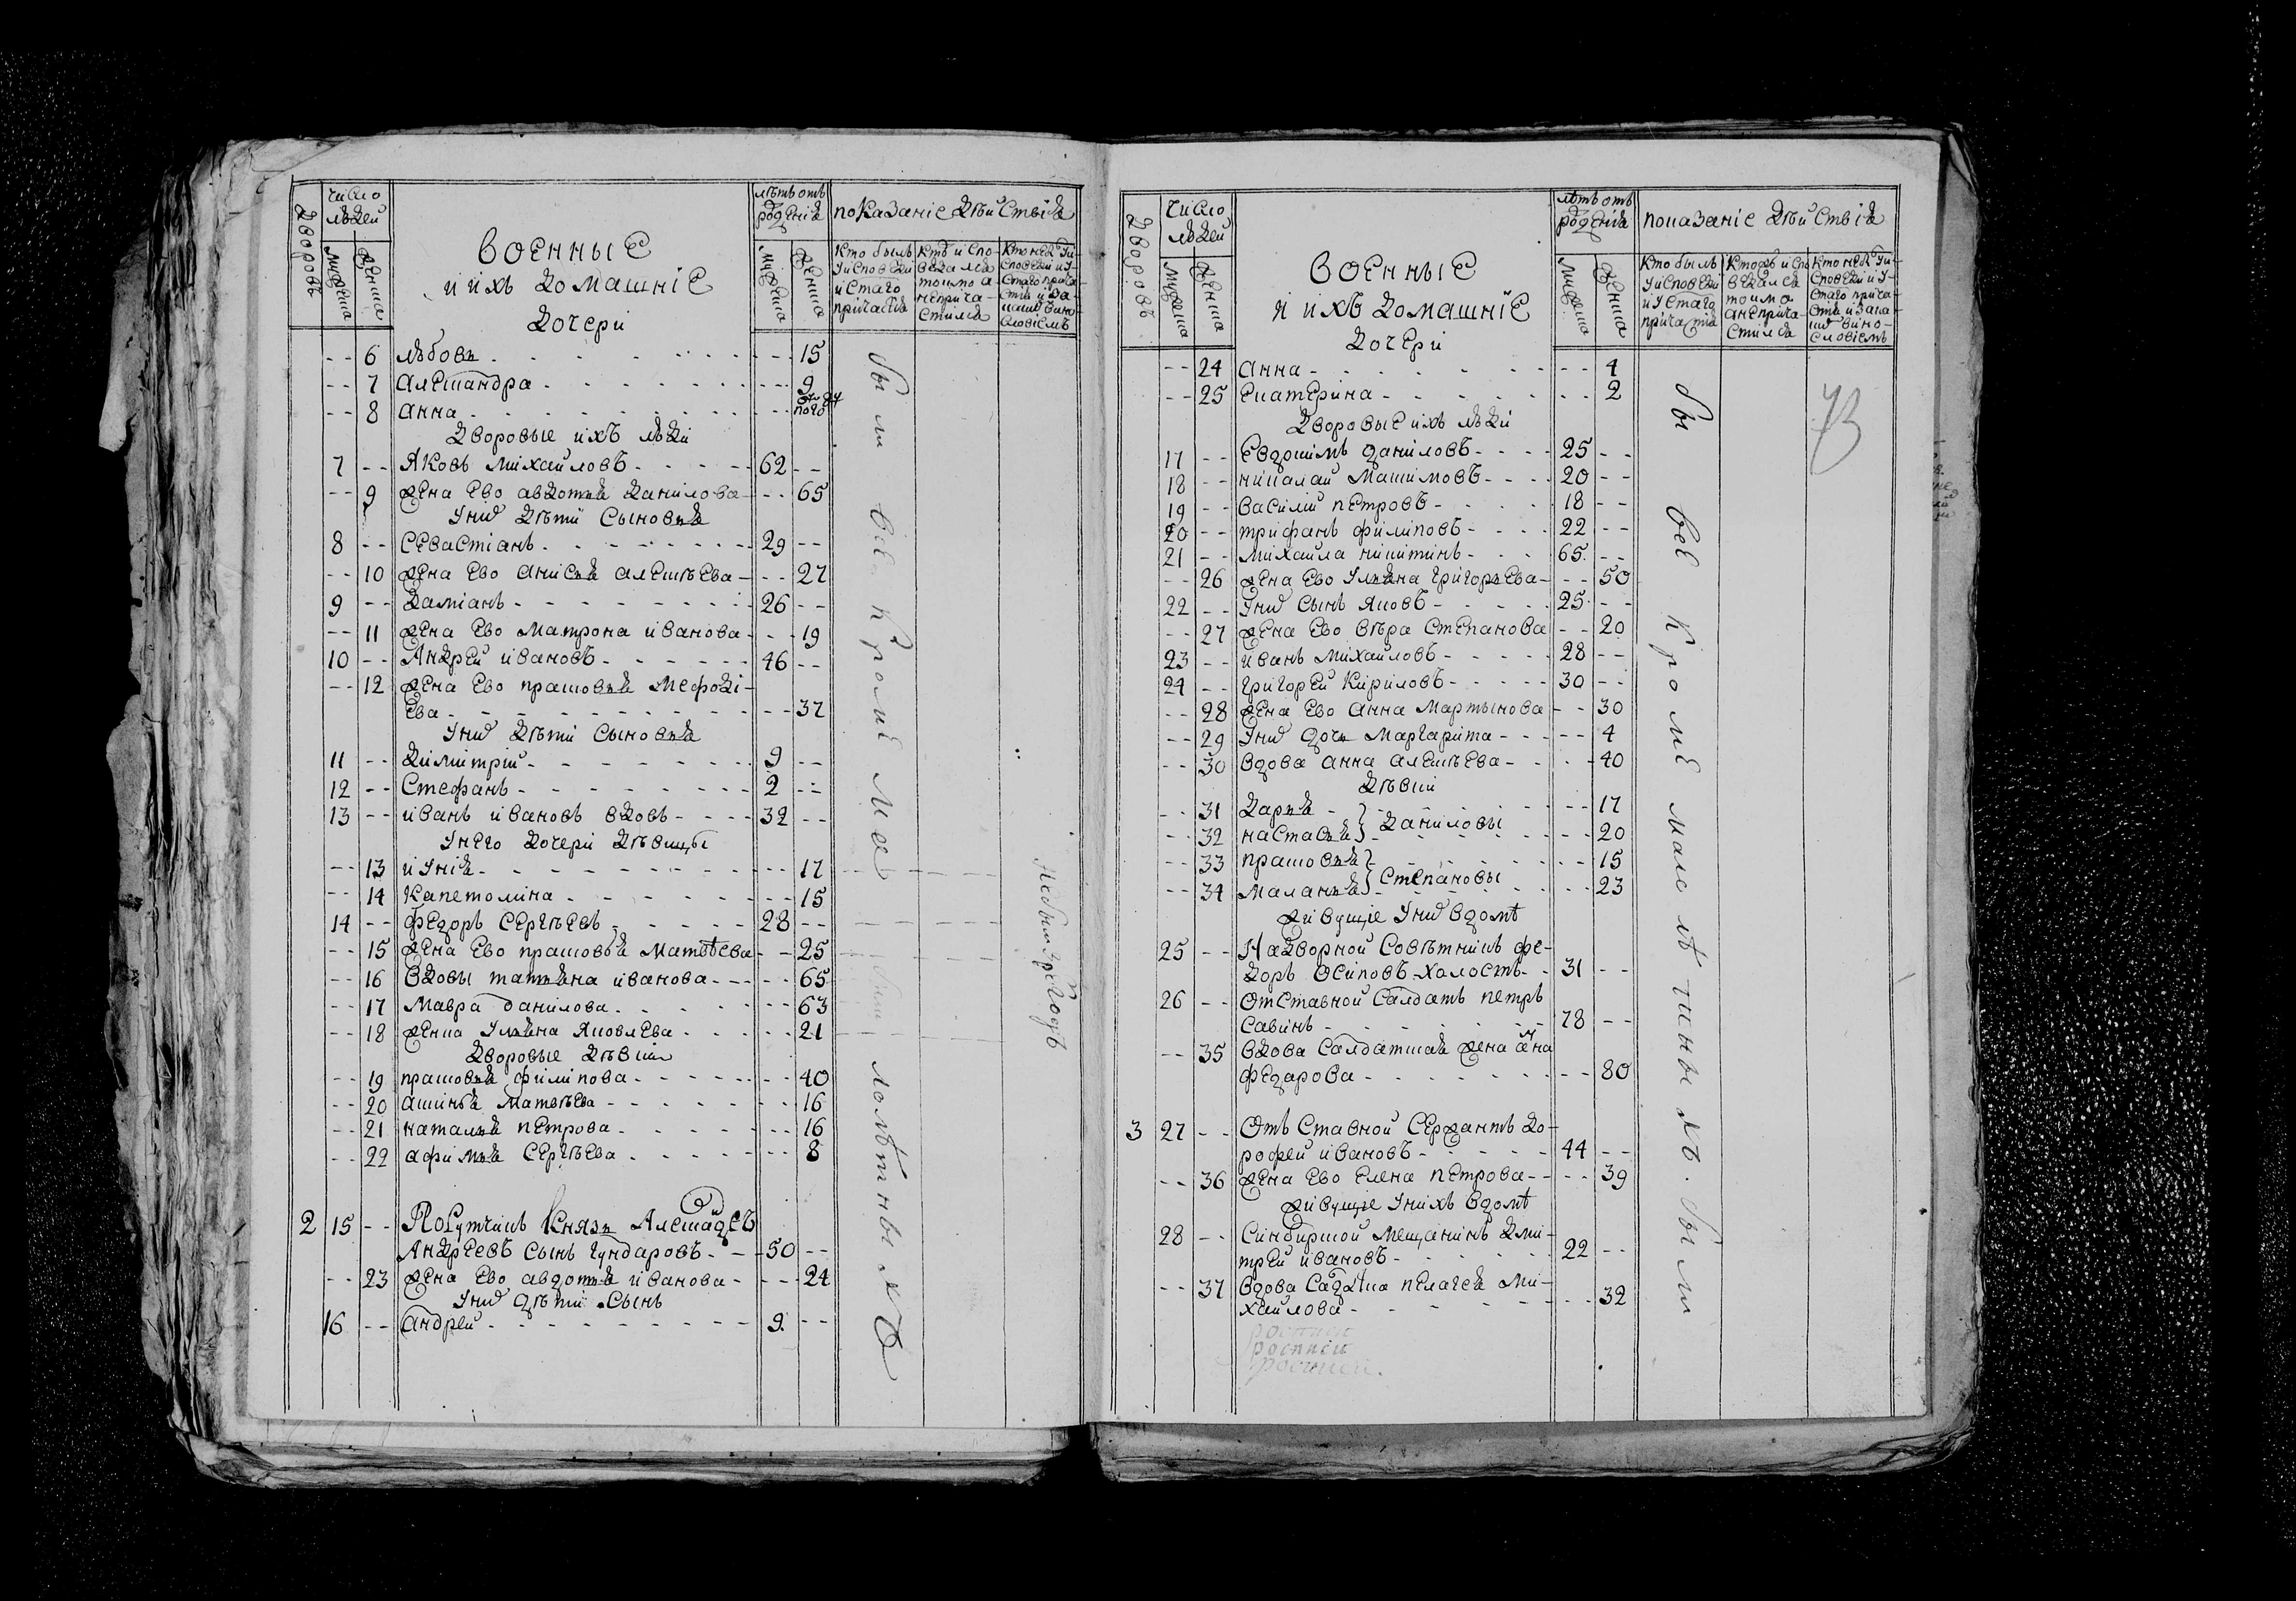 Дворовъ
число людей
мужеска
женска
военные
и ихъ домашніе
лѣтъ отъ рожденія
мужеска
женска
показаніе дѣйствія
кто былъ у исповеди и с͠таго причастія
кто исповедался токмо а непричастился
дочери
-- 6 любовь 15
-- 7 александра 9
-- 8 анна
дворовые ихъ люди
7 -- Яковъ михайловъ 62 --
-- 9 жена ево авдотья данилова -- 65
у них дѣти сыновья
8 -- севастіанъ 29 --
-- 10 жена ево анисья алексѣева -- 27
9 -- даміанъ 26 --
-- 11 жена ево матрона иванова -- 19
10 -- Андрей ивановъ 46 --
-- 12 жена ево прасковья мефоді-
ева -- 37
у них дѣти сыновья
11 -- димитрій 9 --
12 -- стефанъ 2 --
13 -- иванъ ивановъ вдовъ 32 --
у него дочери дѣвицы
-- 13 иуніа -- 17
-- 14 капетолина -- 15
14 -- федоръ сергѣевъ 28 --
-- 15 жена ево прасковья матвѣева -- 25
-- 16 вдовы татьяна иванова -- 65
-- 17 мавра данилова -- 63
-- 18 женка ульяна яковлева -- 21
дворовые дѣвки
-- 19 прасковья филипова -- 40
-- 20 аксинья матвѣева -- 16
-- 21 наталья петрова -- 16
-- 22 афимья сергѣева -- 8
2 15 -- Порутчикъ князь Александръ
Андреевъ сынъ гундаровъ 50 --
-- 23 жена ево авдотья иванова -- 24
у них дѣти сынъ
16 -- андрей 9 --
были все кроме малолѣтныхъ
Дворовъ
число людей
мужеска
женска
военные
и ихъ домашніе
лѣтъ отъ рожденія
мужеска
женска
показаніе дѣйствія
кто былъ у исповеди и с͠таго причастія
дочери
-- 24 анна -- 4
-- 25 екатерина -- 2
дворовые ихъ люди
17 -- евдокимъ даниловъ 25 --
18 -- николай максимовъ 20 --
19 -- василий петровъ 18 --
20 -- трифанъ филиповъ 22 --
21 -- михайла никитинъ 65 --
-- 26 жена ево ульяна григорьева -- 50
22 -- у них сынъ яковъ 25 --
-- 27 жена ево вѣра степанова -- 20
23 -- иванъ михайловъ 28 --
24 -- григорей кириловъ 30 --
-- 28 жена ево анна мартынова -- 30
-- 29 у них дочь маргарита -- 4
-- 30 вдова анна алексѣева -- 40
дѣвки
-- 31 дарья } даниловы -- 17
-- 32 настасья -- 20
-- 33 прасковья } степановы -- 15
-- 34 маланья -- 23
живущие у них вдомѣ
25 -- Надворной совѣтникъ фе-
доръ осиповъ холостъ 31 --
26 -- отставной салдатъ петръ
савинъ 78 --
-- 35 вдова салдатская жена анна
федарова -- 80
3 27 -- отъ ставной сержантъ до-
рофей ивановъ 44 --
-- 36 жена ево елена петрова -- 39
живущие у нихъ вдомѣ
28 -- синбирской мещанинъ дми-
трей ивановъ 22 --
-- 37 вдова салдатка пелагея ми-
хайлова -- 32
были все кроме малолѣтныхъ
росписи
росписи
73